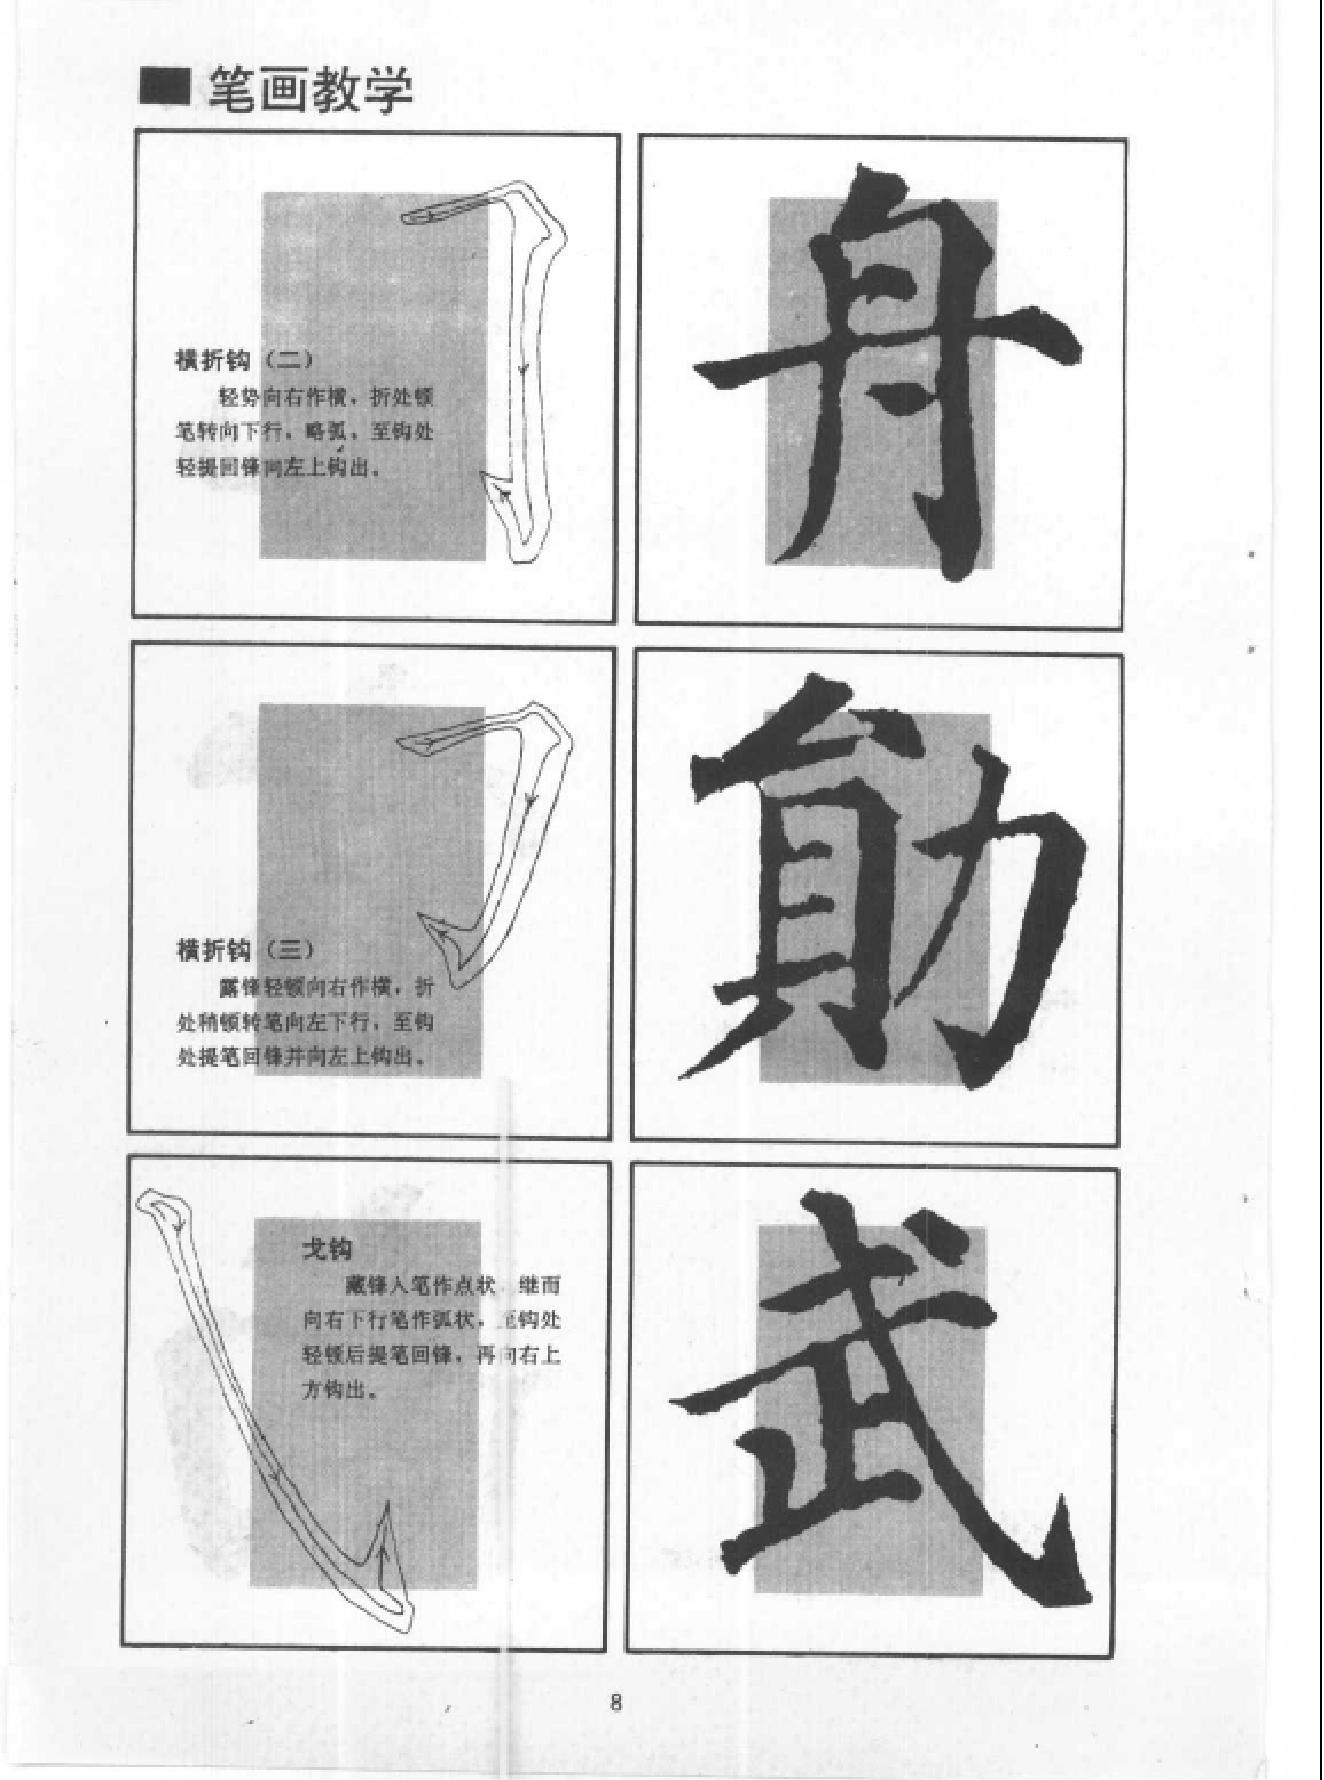 ■ 笔画教学
横折钩（二）
轻势向右作横，折处顿
笔转向下行，略弧，至钩处
轻提回锋向左上钩出。
舟
横折钩（三）
露锋轻顿向右作横，折
处稍顿转笔向左下行，至钩
处提笔回锋并向左上钩出。
勛
戈钩
藏锋入笔作点状，继而
向右下行笔作弧状，至钩处
轻顿后提笔回锋，再向右上
方钩出。
武
8